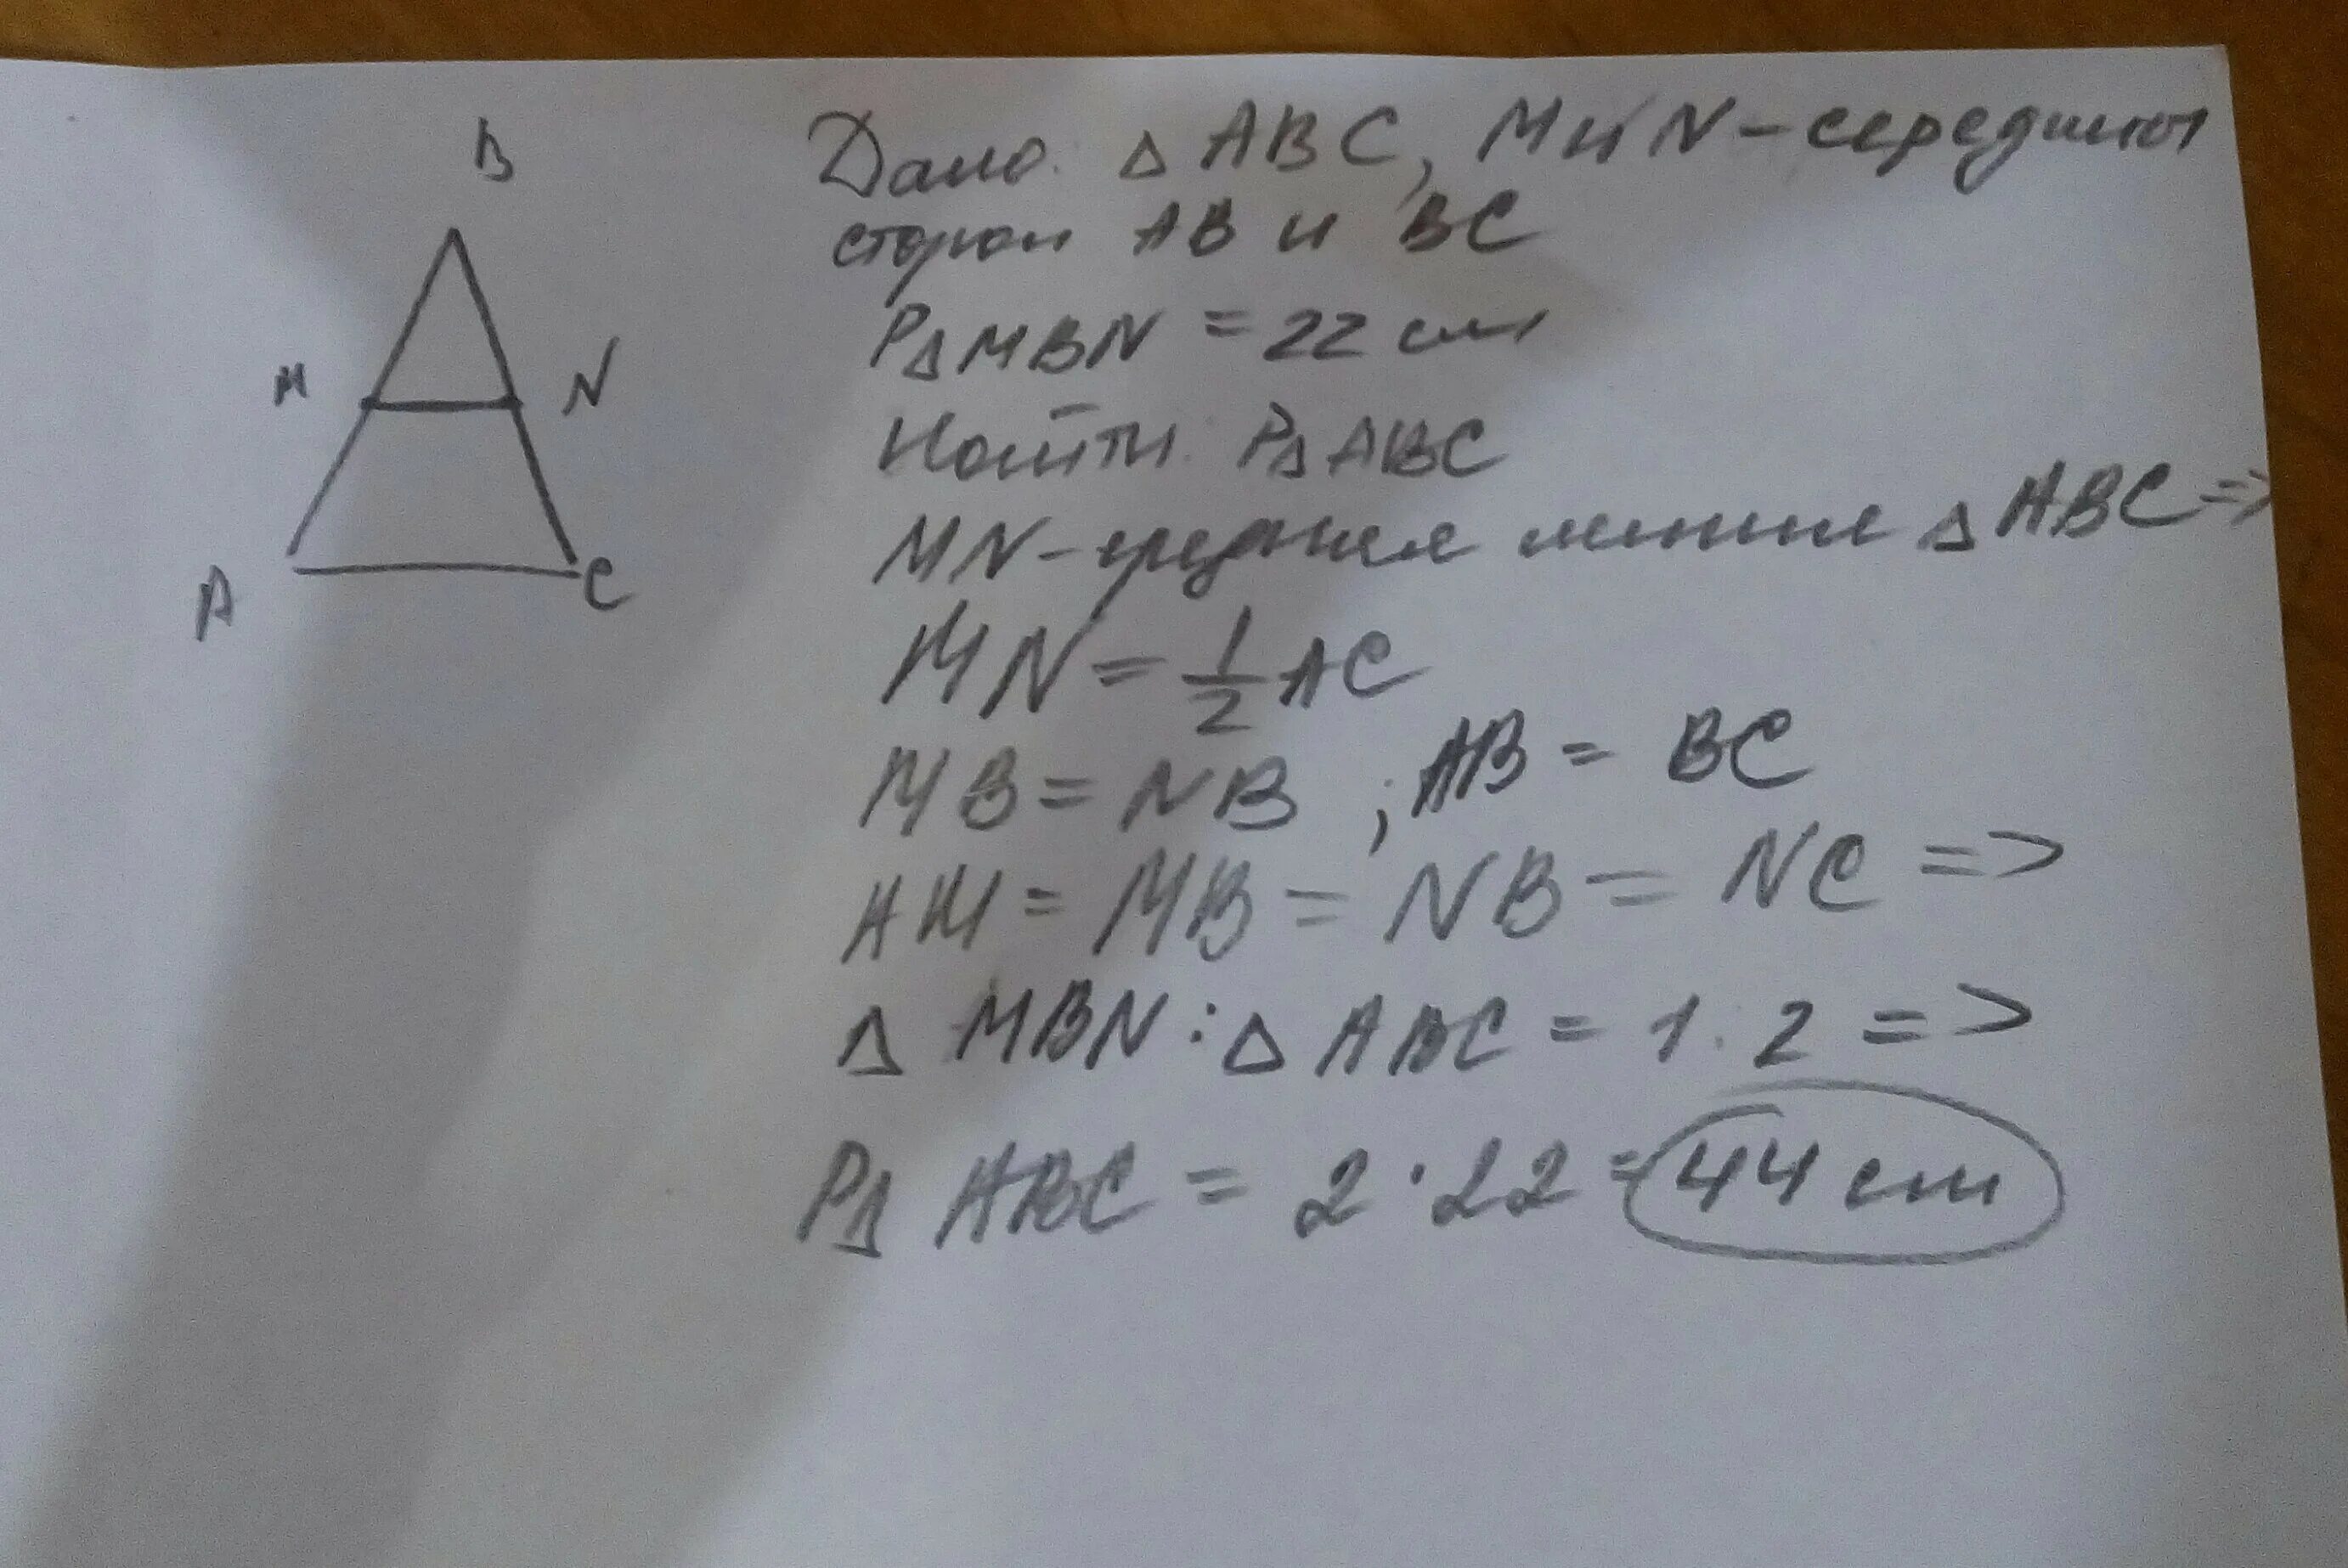 B
M
N
A
C
Дано: △ ABC, M и N - середины
сторон AB и BC
P△MBN = 22 см
Найти: P△ABC
MN - средняя линия △ ABC =>
MN = 1/2 AC
MB = NB ; AB = BC
AM = MB = NB = NC =>
△ MBN : △ ABC = 1 : 2 =>
P△ ABC = 2 · 22 = 44 см